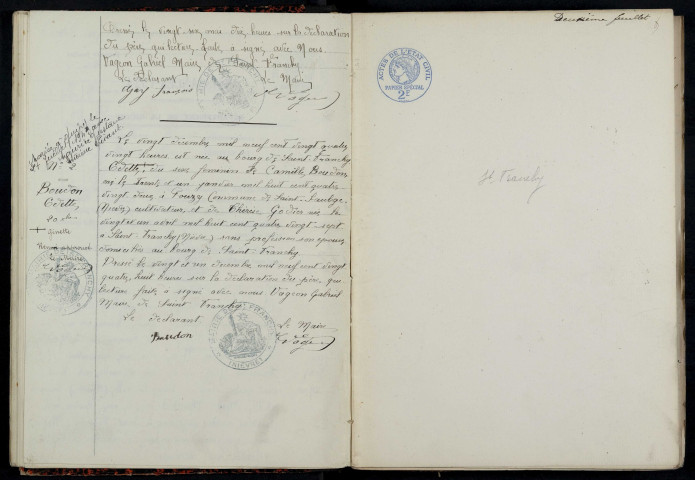 Dressé le vingt six mars dix heures sur la déclaration
du père qui lecture faite a signé avec Nous
Vageon Gabriel Maire de Saint Franchy
Le Déclarant Le Maire
Vageon
Boudon
Odette
20 Xbre
ginette
Le vingt decembre mil neuf cent vingt quatre
vingt heures est née au bourg de Saint-Franchy
Odette, du sexe feminin de Camille Boudon
né le trente et un janvier mil huit cent quatre
vingt à Commune de Saint-Saulge
(Nièvre) cultivateur et de Thérèse Godin née le
vingt et un avril mil huit cent quatre vingt sept
à Saint-Franchy (Nièvre) sans profession son épouse
domiciliés au bourg de Saint-Franchy
Dressé le vingt et un decembre mil neuf cent vingt
quatre huit heures sur la déclaration du père, qui
lecture faite a signé avec nous Vageon Gabriel
Maire de Saint Franchy
Le declarant Le Maire
Boudon Vageon
Deuxième feuillet
ACTES DE L'ETAT CIVIL
PAPIER SPECIAL
2F
St Franchy